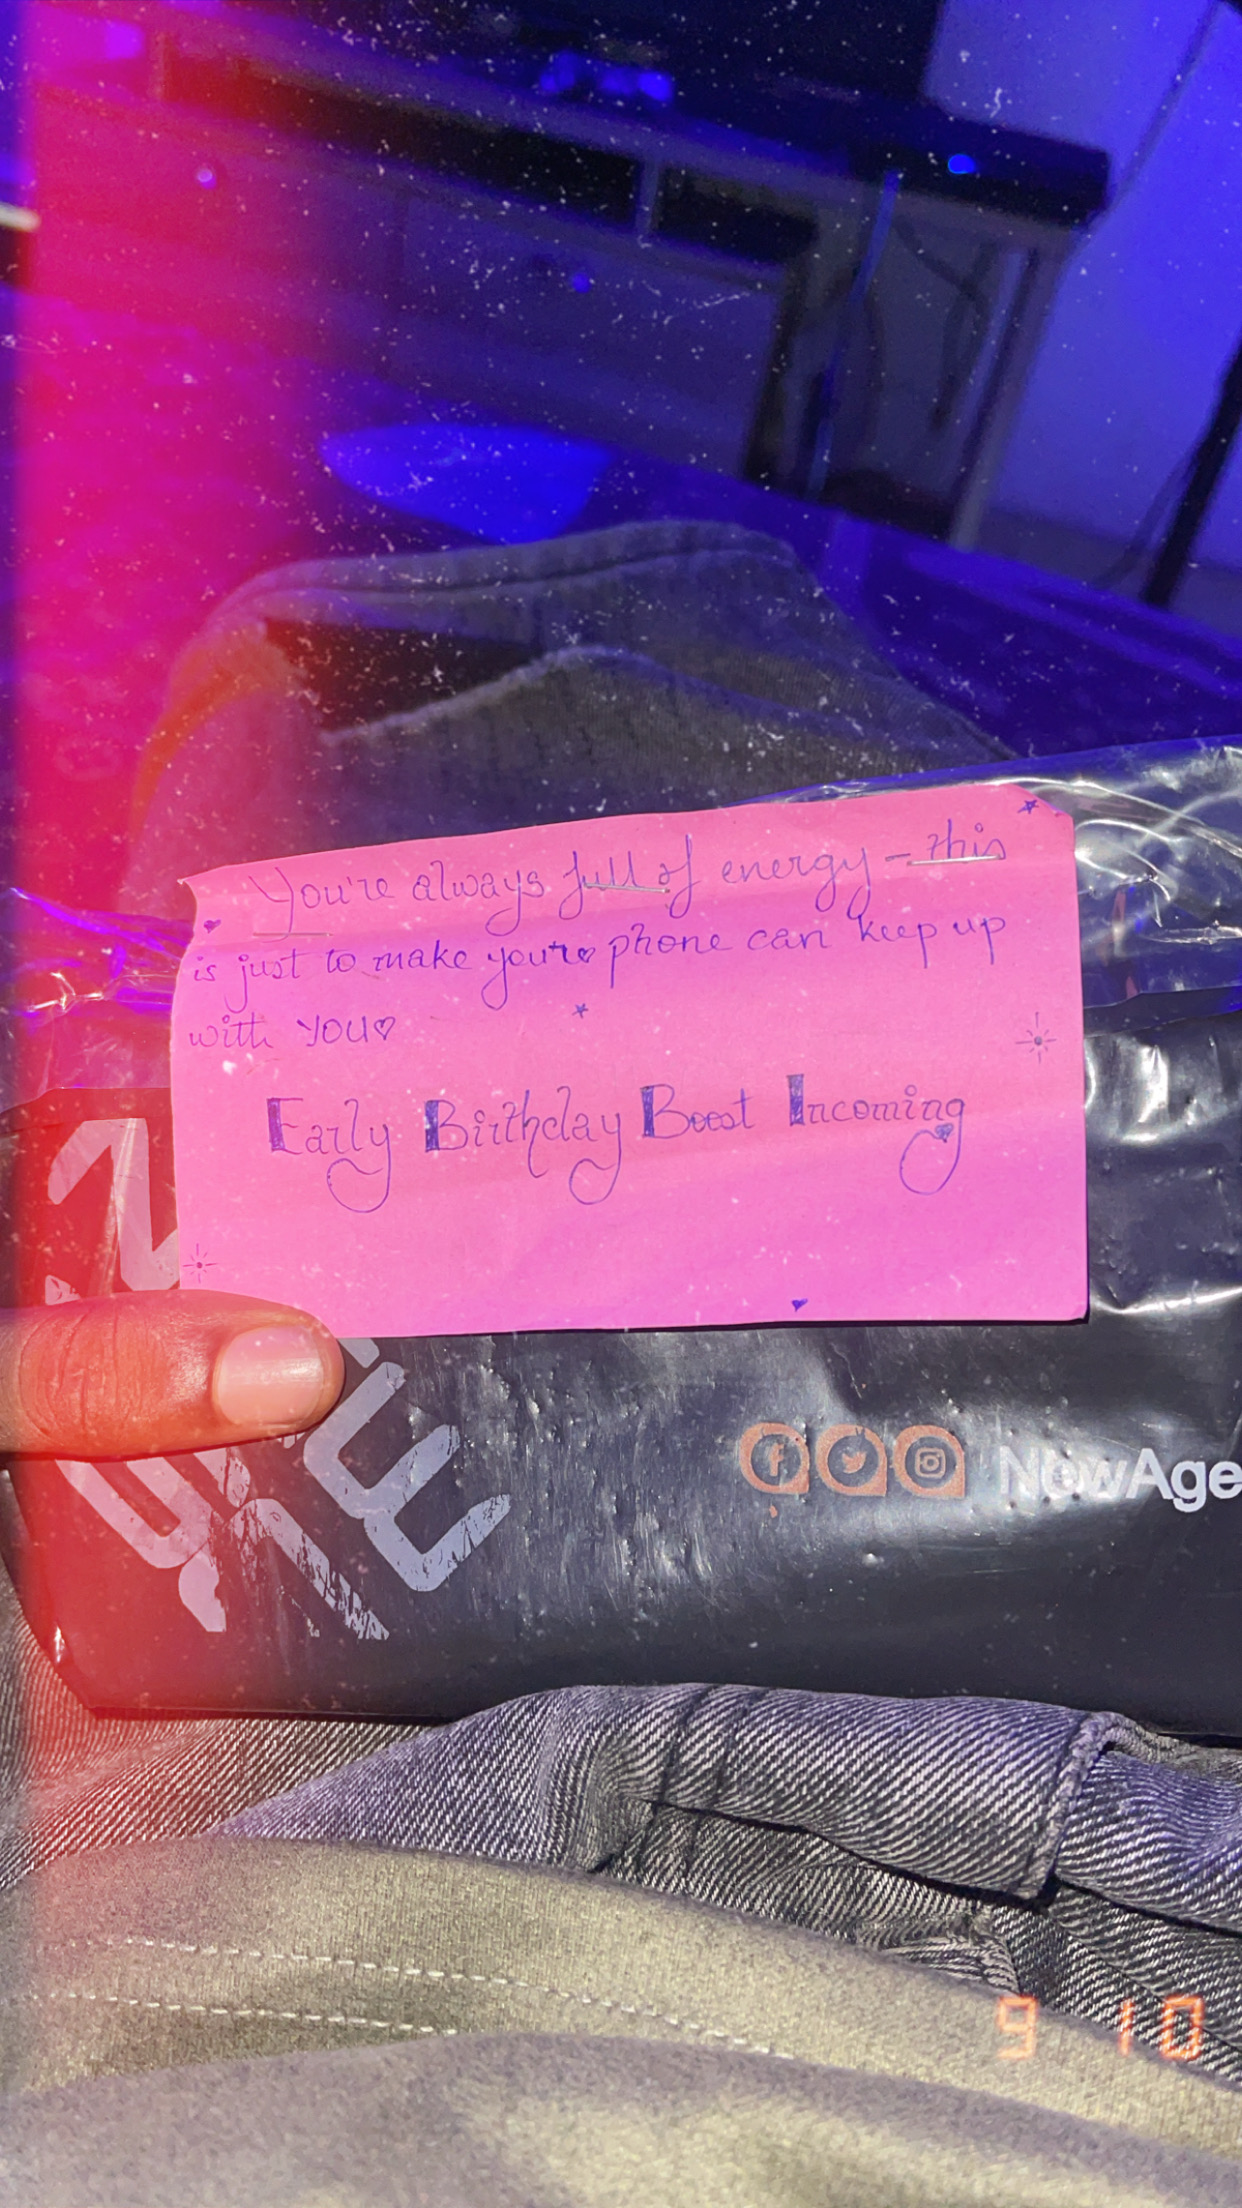 You're always full of energy – this
is just to make you're phone can keep up
with YOU♡
Early Birthday Boost Incoming
NowAge
9 10